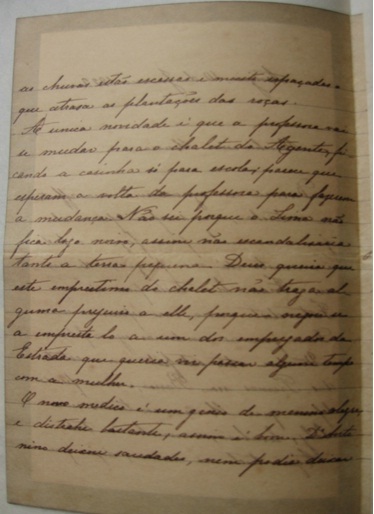 as chuvas estão escassas e muito espaçadas o
que atrasa as plantações das roças.
A unica novidade é que a professora vai
se mudar para o chalet da Agencia, fi
cando a casinha só para escola, parece que
esperam a volta da professora para fazerem
a mudança. Não sei porque o Lima não
fica logo noivo, assim não escandalisaria
tanto a terra pequena. Deus queira que
este emprestimo do chalet não traga al
gum prejuiso a elle, porque negou-se
a empresta-lo a um dos empregados da
Estrada que queria vir passar algum tempo
com a mulher.
O novo medico é um genio de menino alegre,
e distrahe bastante, assim é bom. Dª
nina deixou saudades, nem podia deixar